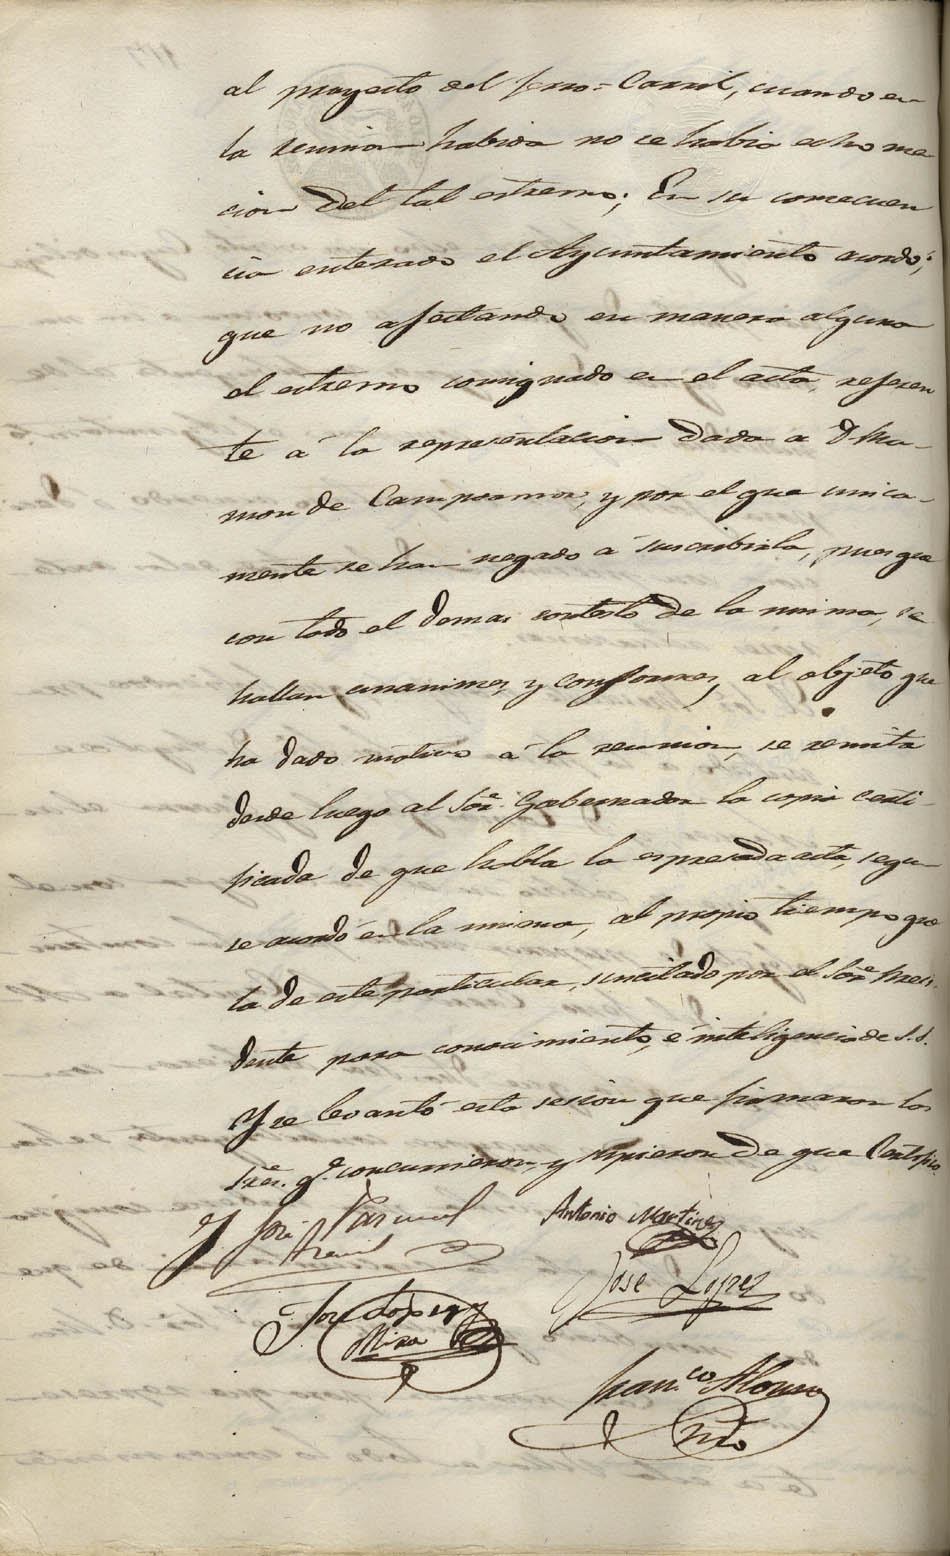 al proyecto del ferro=Carril, cuando en
la reunion habida no se habia echo men
cion del tal estremo; En su consecuen
cia enterado el Ayuntamiento acordó;
que no afectando en manera alguna
el estremo consignado en el acta, referen
te á la representacion dada a D. Ra-
mon de Campoamor, y por el que unica-
mente se han negado á suscribirla, pues que
con todo el demas contesto de la misma, se
hallan unanimes, y conformes, al objeto que
ha dado motivo á la reunion, se remita
desde luego al Sor. Gobernador la copia certi-
ficada de que habla la espresada acta, segun
se acordó en la misma, al propio tiempo que
la de este particular, suscitado por el Sor. Presi-
dente para conocimiento, é inteligencia de S.S.
Y se levantó esta sesion que firmaron los
Sres. q. concurrieron y supieron de que Certifico.
José Pascual
Antonio Martinez
José Lopez
José Lopez y
Mira
Fran.co Alonso